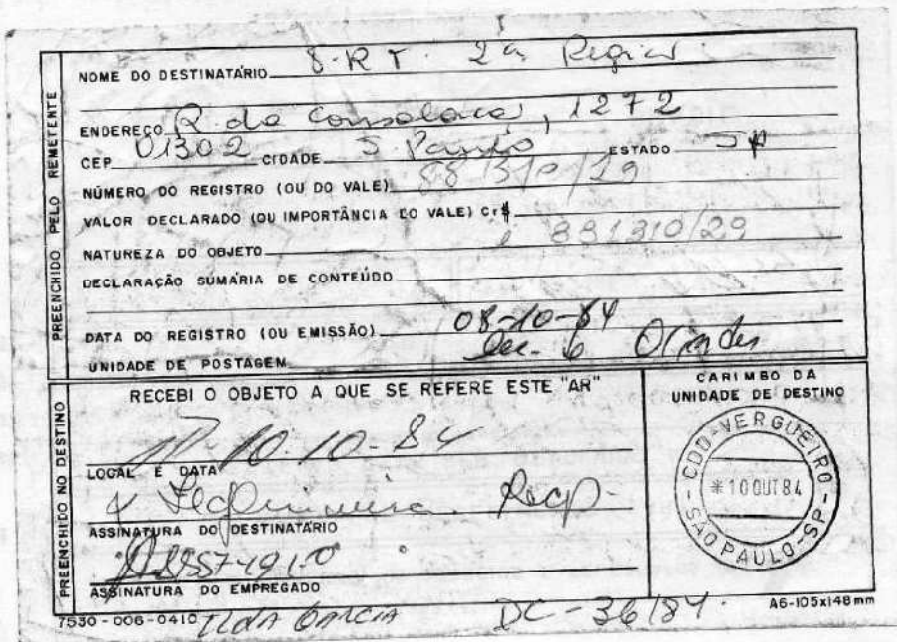 PREENCHIDO PELO REMETENTE
NOME DO DESTINATÁRIO T.R.T. 2ª Região
ENDEREÇO R. da Consolação, 1272
CEP 01302 CIDADE S. Paulo ESTADO SP
NÚMERO DO REGISTRO (OU DO VALE)
VALOR DECLARADO (OU IMPORTÂNCIA DO VALE) Cr$
881310/29
NATUREZA DO OBJETO
DECLARAÇÃO SUMÁRIA DE CONTEÚDO
DATA DO REGISTRO (OU EMISSÃO) 08-10-84
UNIDADE DE POSTAGEM
PREENCHIDO NO DESTINO
RECEBI O OBJETO A QUE SE REFERE ESTE "AR"
10-10-84
LOCAL E DATA
Recp.
ASSINATURA DO DESTINATÁRIO
ASSINATURA DO EMPREGADO
CARIMBO DA
UNIDADE DE DESTINO
CDD-VERGUEIRO
*10 OUT 84
SÃO PAULO-SP
7530-006-0410 ILDA GARCIA DC-36/84.
A6-105x148mm